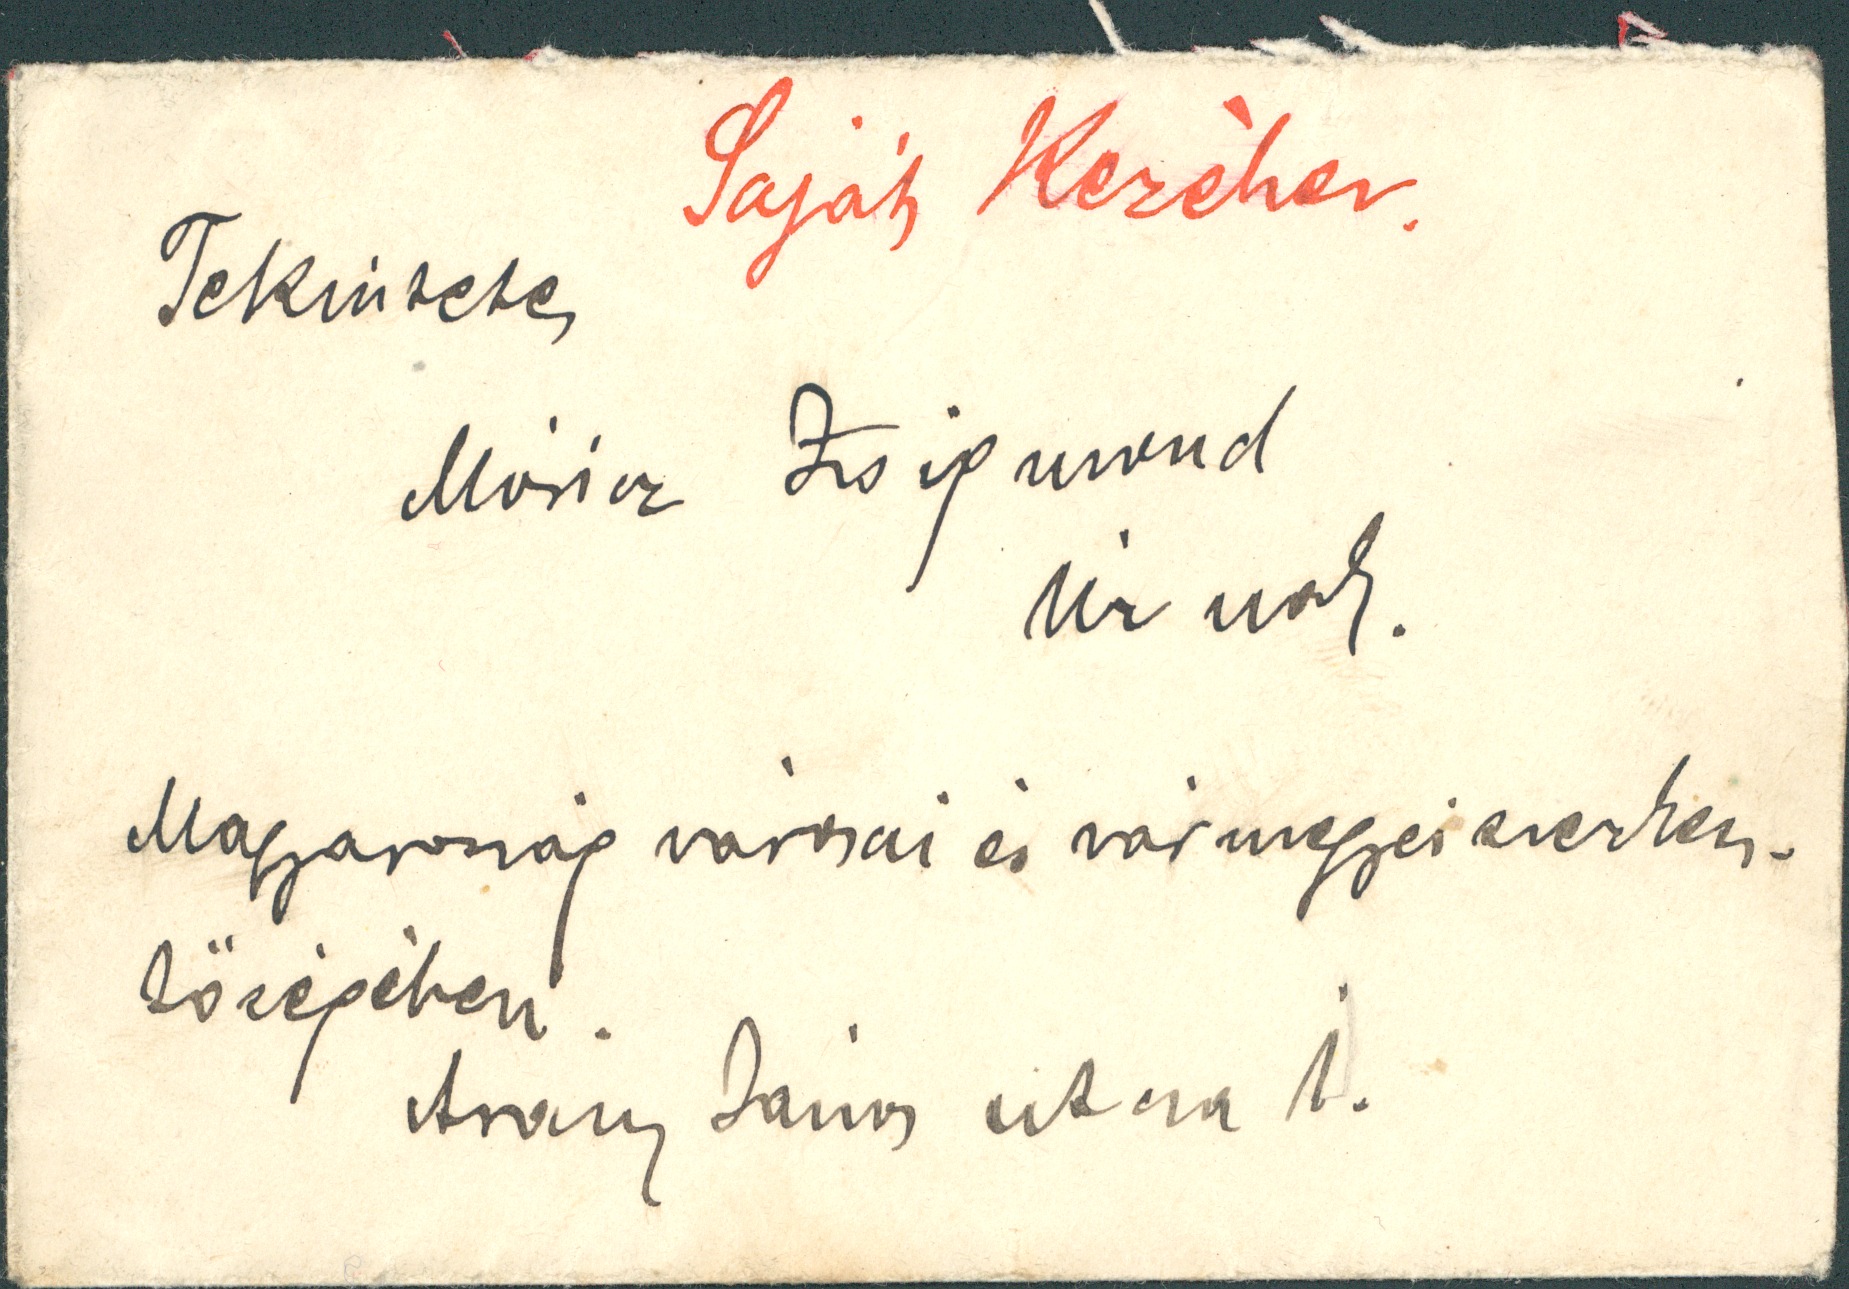 Saját Kezéhez.
Tekintetes
Móricz Zsigmond
Úr nak.
Magyarország városai és vármegyéi szerkesz-
tőségében.
Arany János utca 1.